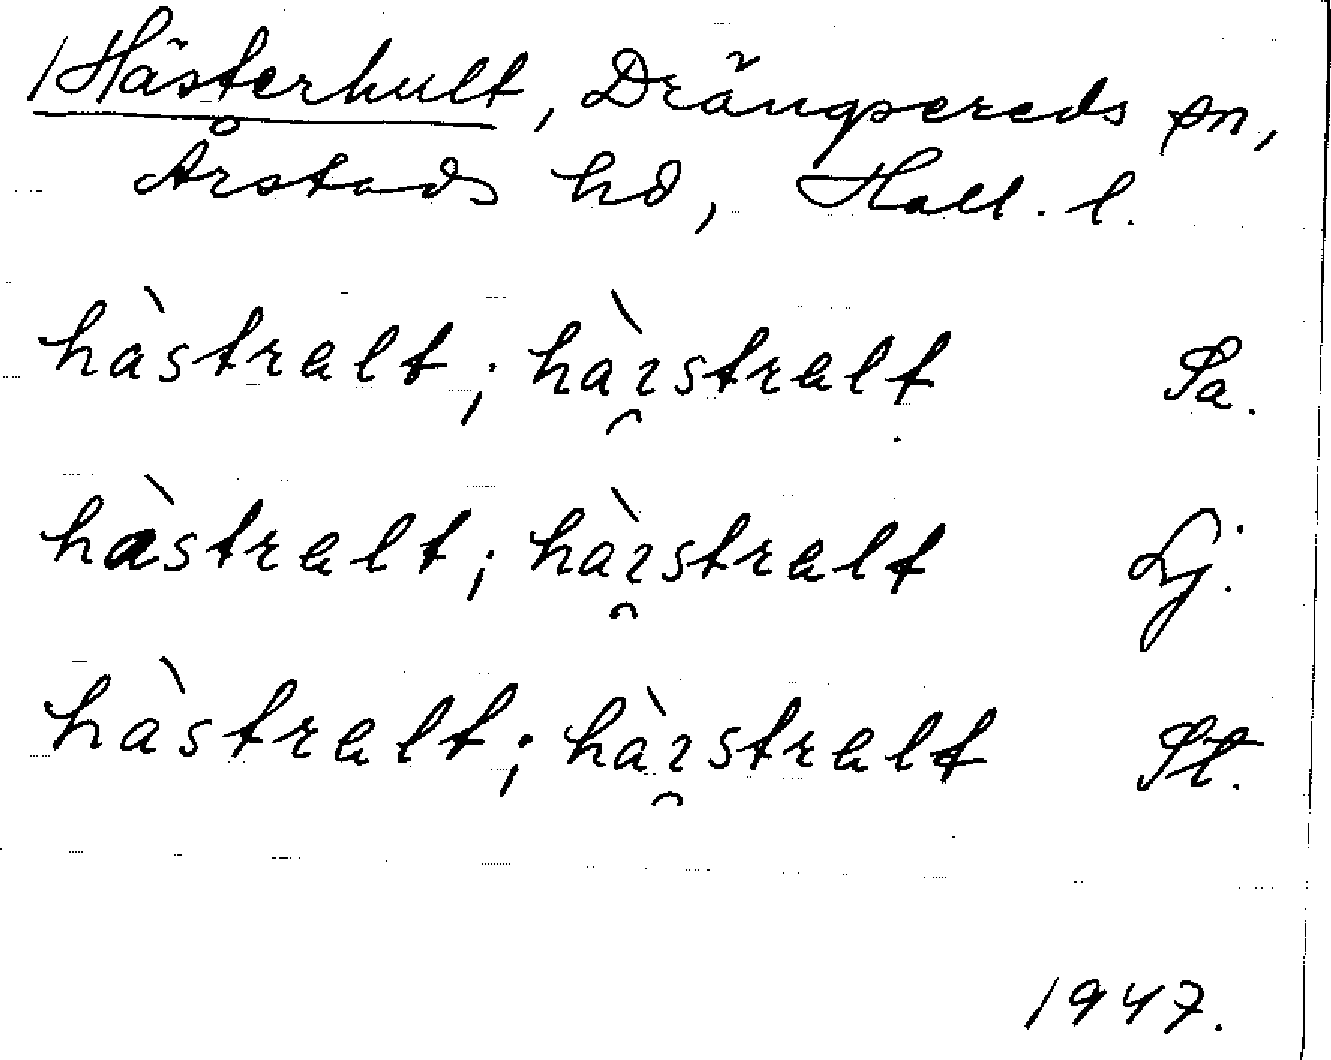 /Hästerhult, Drängsereds sn,
Årstads hd, Hall. l.
hàstralt; hàɿ̯stralt Sa.
hàstralt; hàɿ̯stralt Lj.
hàstralt; hàɿ̯stralt St.
1947.